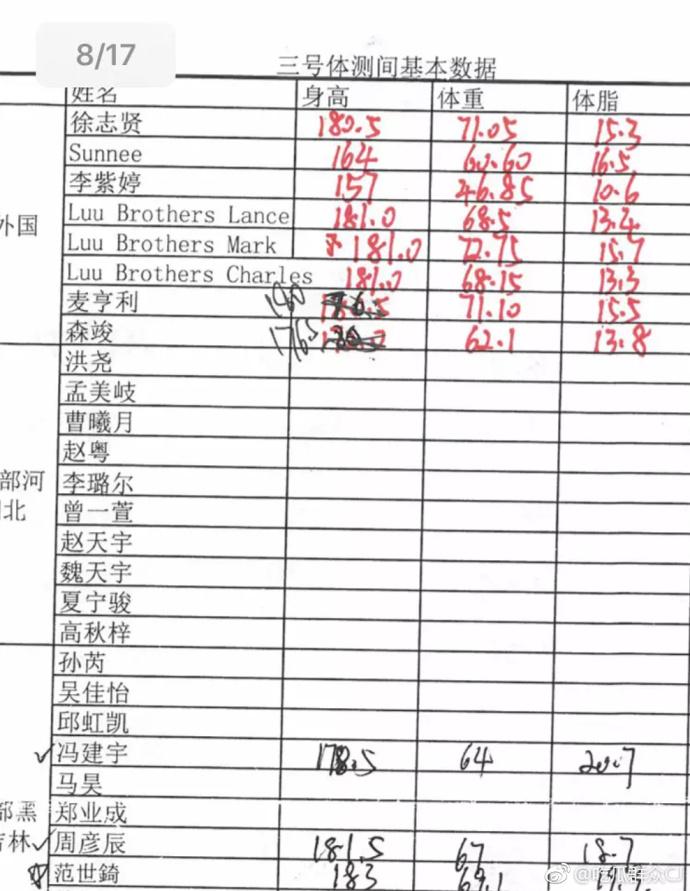 8/17
三号体测间基本数据
姓名 身高 体重 体脂
徐志贤 180.5 71.05 15.3
Sunnee 164 60.60 16.5
外国 李紫婷 157 46.85 10.6
Luu Brothers Lance 181.0 68.5 13.4
Luu Brothers Mark 181.0 72.75 15.7
Luu Brothers Charles 181.0 68.15 13.3
麦亨利 180 71.10 15.5
森竣 176.5 62.1 13.8
洪尧
孟美岐
曹曦月
赵粤
部河 李璐尔
北 曾一萱
赵天宇
魏天宇
夏宁骏
高秋梓
孙芮
吴佳怡
邱虹凯
冯建宇 178.5 64 20.7
马昊
部黑 郑业成
吉林 周彦辰 181.5 67 18.7
范世錡 183
@吃瓜群众CJ